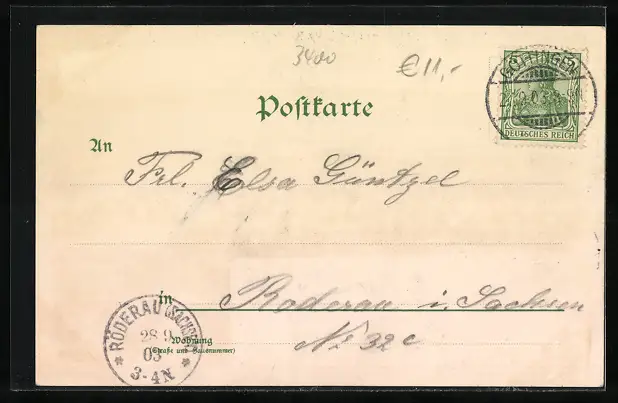 3400
€11,-
GÖTTINGEN
DEUTSCHES REICH
Postkarte
An
Frl. Elsa Güntzel
in Roderau i. Sachsen
Wohnung
(Straße und Hausnummer)
Nr 32 c
RÖDERAU (SACHSEN)
28 9
03
3-4N